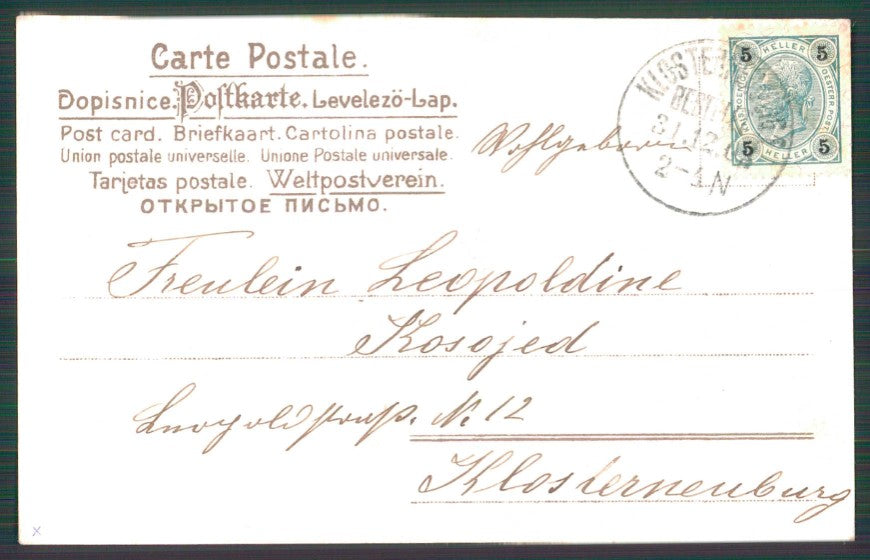 Carte Postale.
Dopisnice. Postkarte. Levelező-Lap.
Post card. Briefkaart. Cartolina postale.
Union postale universelle. Unione Postale universale.
Tarjetas postale. Weltpostverein.
ОТКРЫТОЕ ПИСЬМО.
5 HELLER 5
5 HELLER 5
31.12
2-4N
Wohlgeboren
Freulein Leopoldine
Kosojed
Leopoldstraße. No 12
Klosterneuburg
x